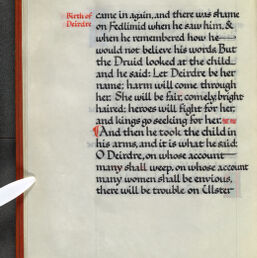 Birth of
Deirdre
came in again, and there was shame
on Fedlimid when he saw him, &
when he remembered how he
would not believe his words. But
the Druid looked at the child
and he said: Let Deirdre be her
name; harm will come through
her. She will be fair, comely, bright
haired: heroes will fight for her,
and kings go seeking for her.
¶And then he took the child in
his arms, and it is what he said:
O Deirdre, on whose account
many shall weep, on whose account
many women shall be envious,
there will be trouble on Ulster